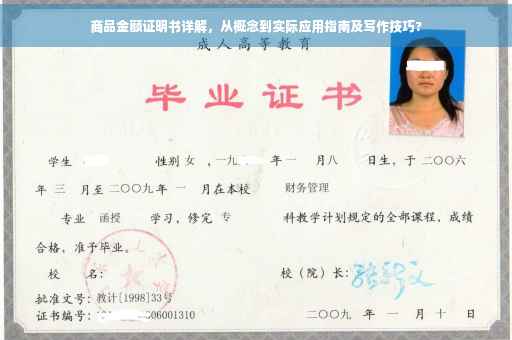 商品金额证明书详解，从概念到实际应用指南及写作技巧?
成人高等教育
毕业证书
学生 性别 女 ，一九 年 一 月八 日生，于 二〇〇六
年 三 月至 二〇〇九 年 一 月在本校 财务管理
专业 函授 学习，修完 专 科教学计划规定的全部课程，成绩
合格，准予毕业。
校 名： 校（院）长：
批准文号：教计[1998]33号
证书编号： 06001310 二〇〇九 年 一 月 十 日